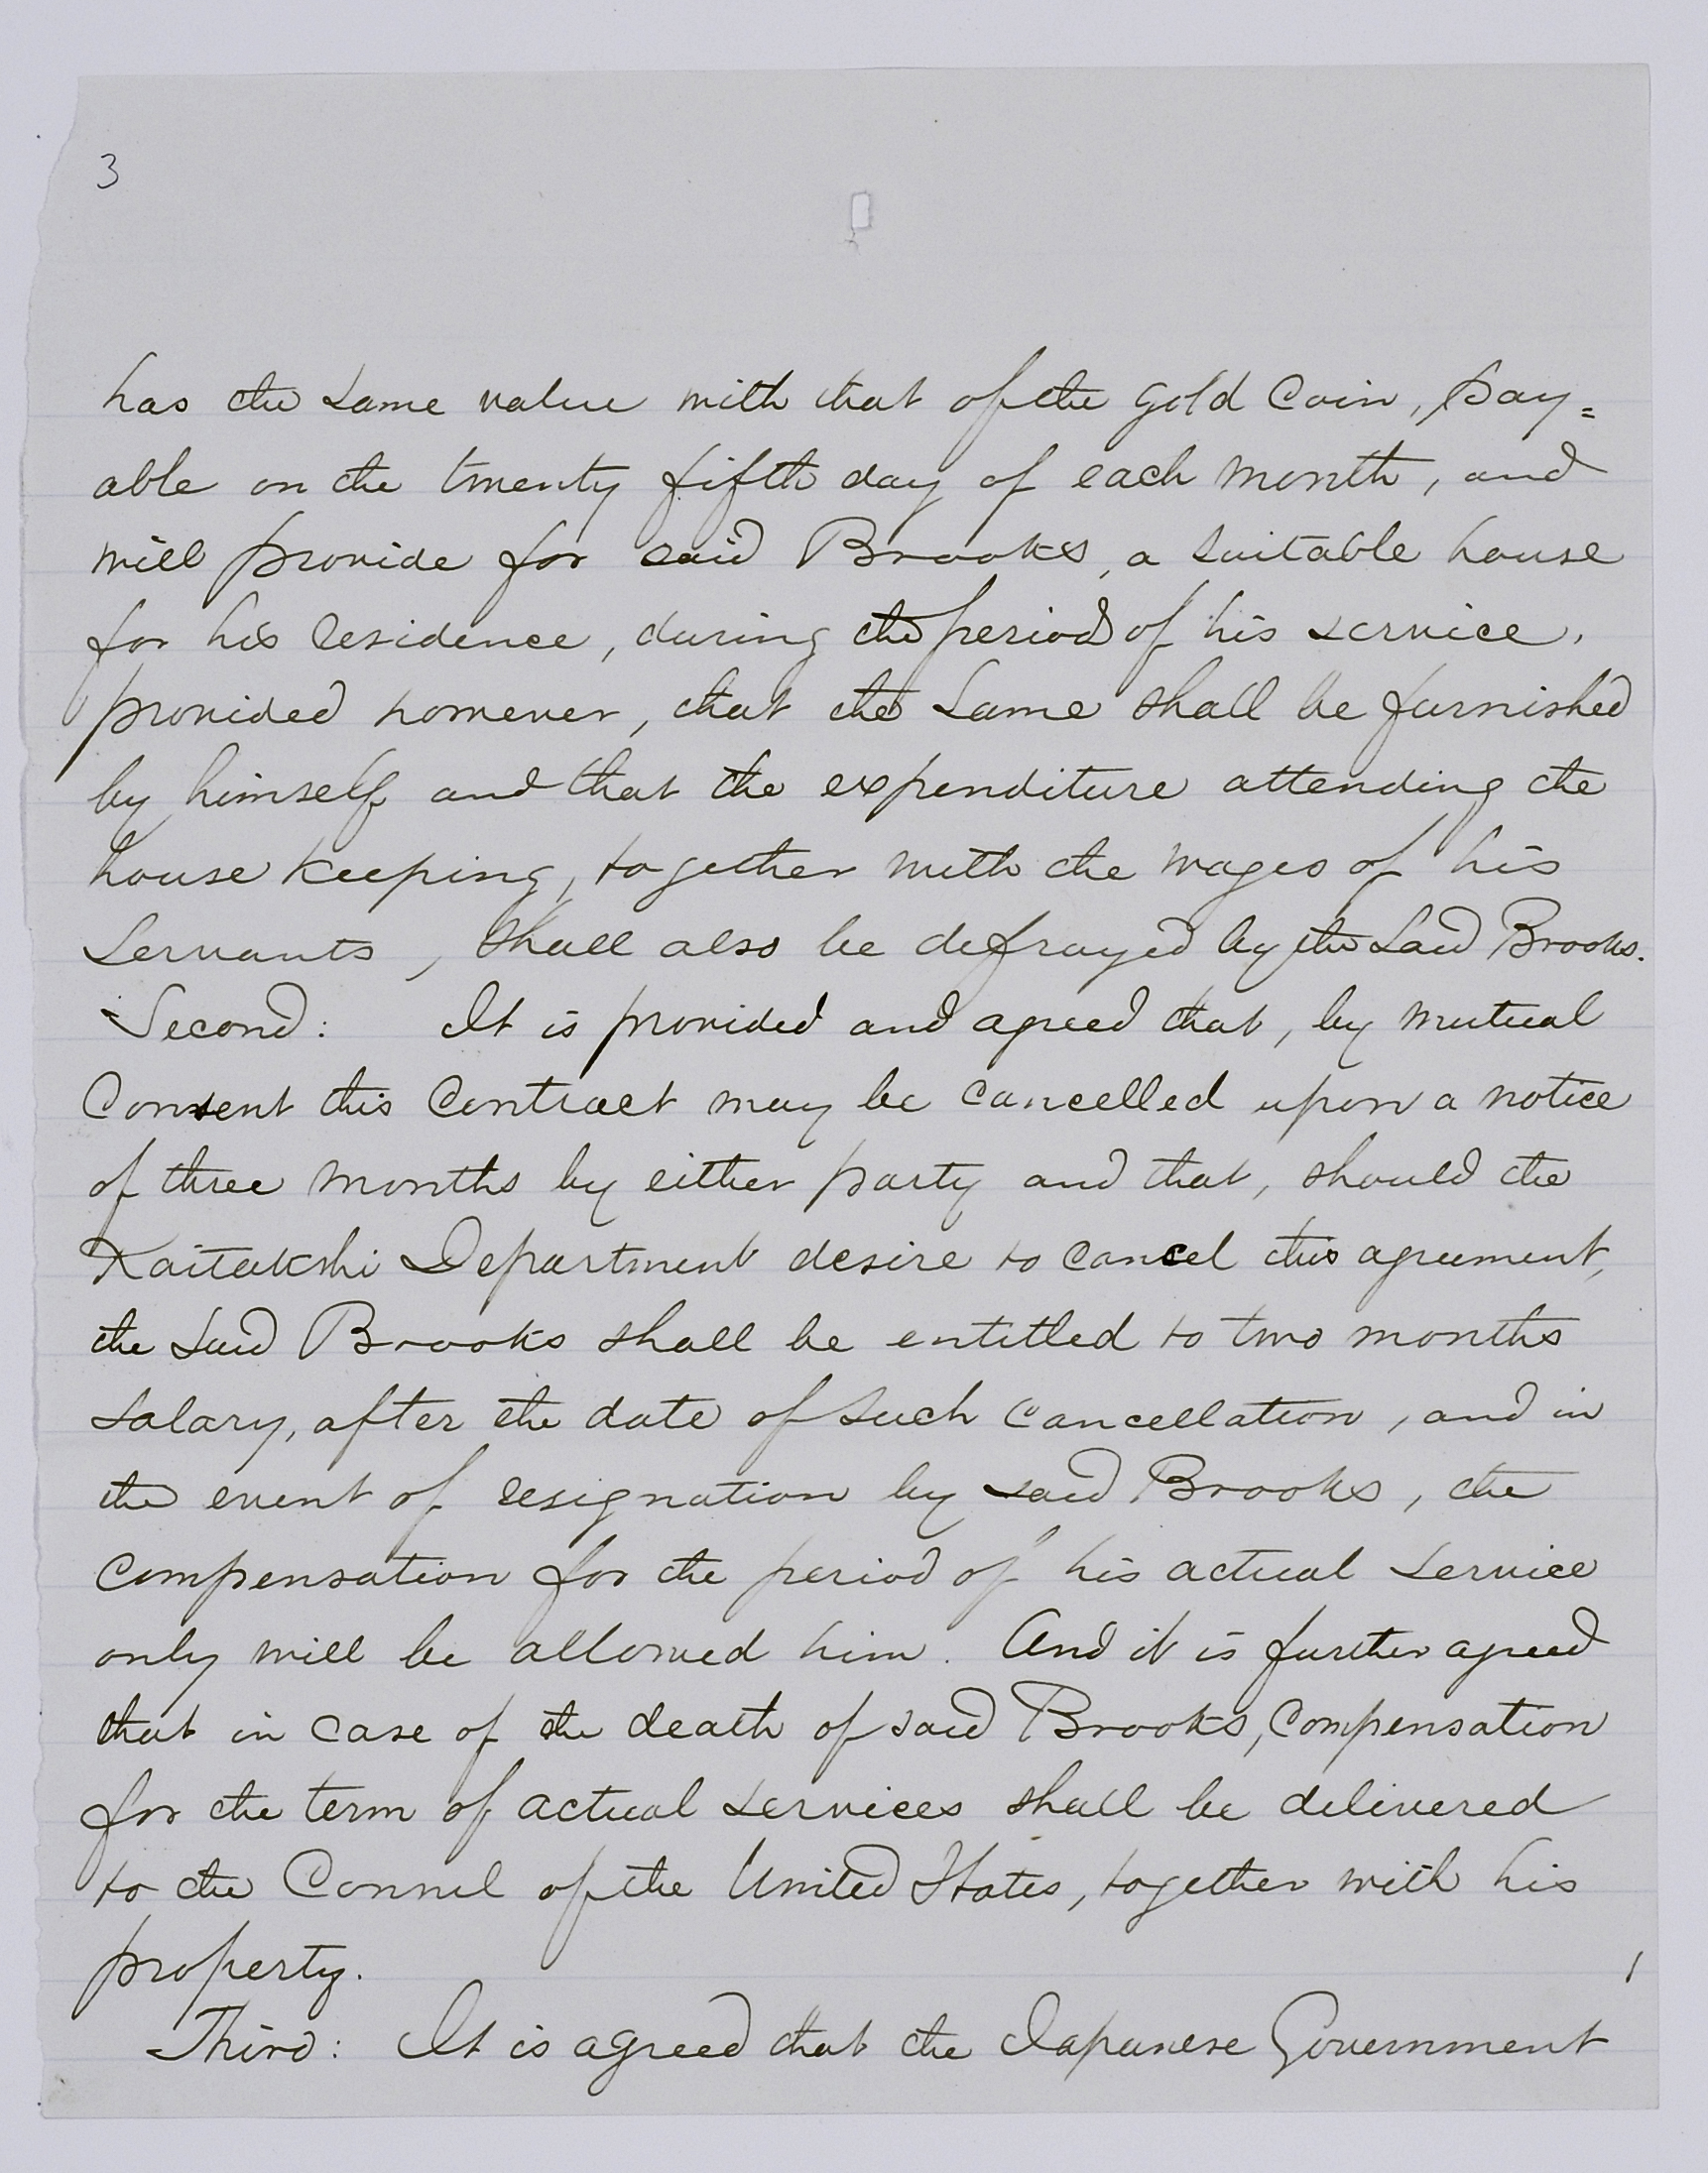 3
has the same value with that of the gold Coin, pay=
able on the twenty fifth day of each month, and
will provide for said Brooks, a suitable house
for his residence, during the period of his service,
provided however, that the same shall be furnished
by himself and that the expenditure attending the
house keeping, together with the wages of his
servants, shall also be defrayed by the said Brooks.
Second: It is provided and agreed that, by mutual
Consent this Contract may be cancelled upon a notice
of three months by either party and that, should the
Kaitakshi Department desire to cancel this agreement,
the said Brooks shall be entitled to two months
salary, after the date of such cancellation, and in
the event of resignation by said Brooks, the
compensation for the period of his actual service
only will be allowed him. And it is further agreed
that in case of the death of said Brooks, Compensation
for the term of actual services shall be delivered
to the Connul of the United States, together with his
property.
Third: It is agreed that the Japanese Government